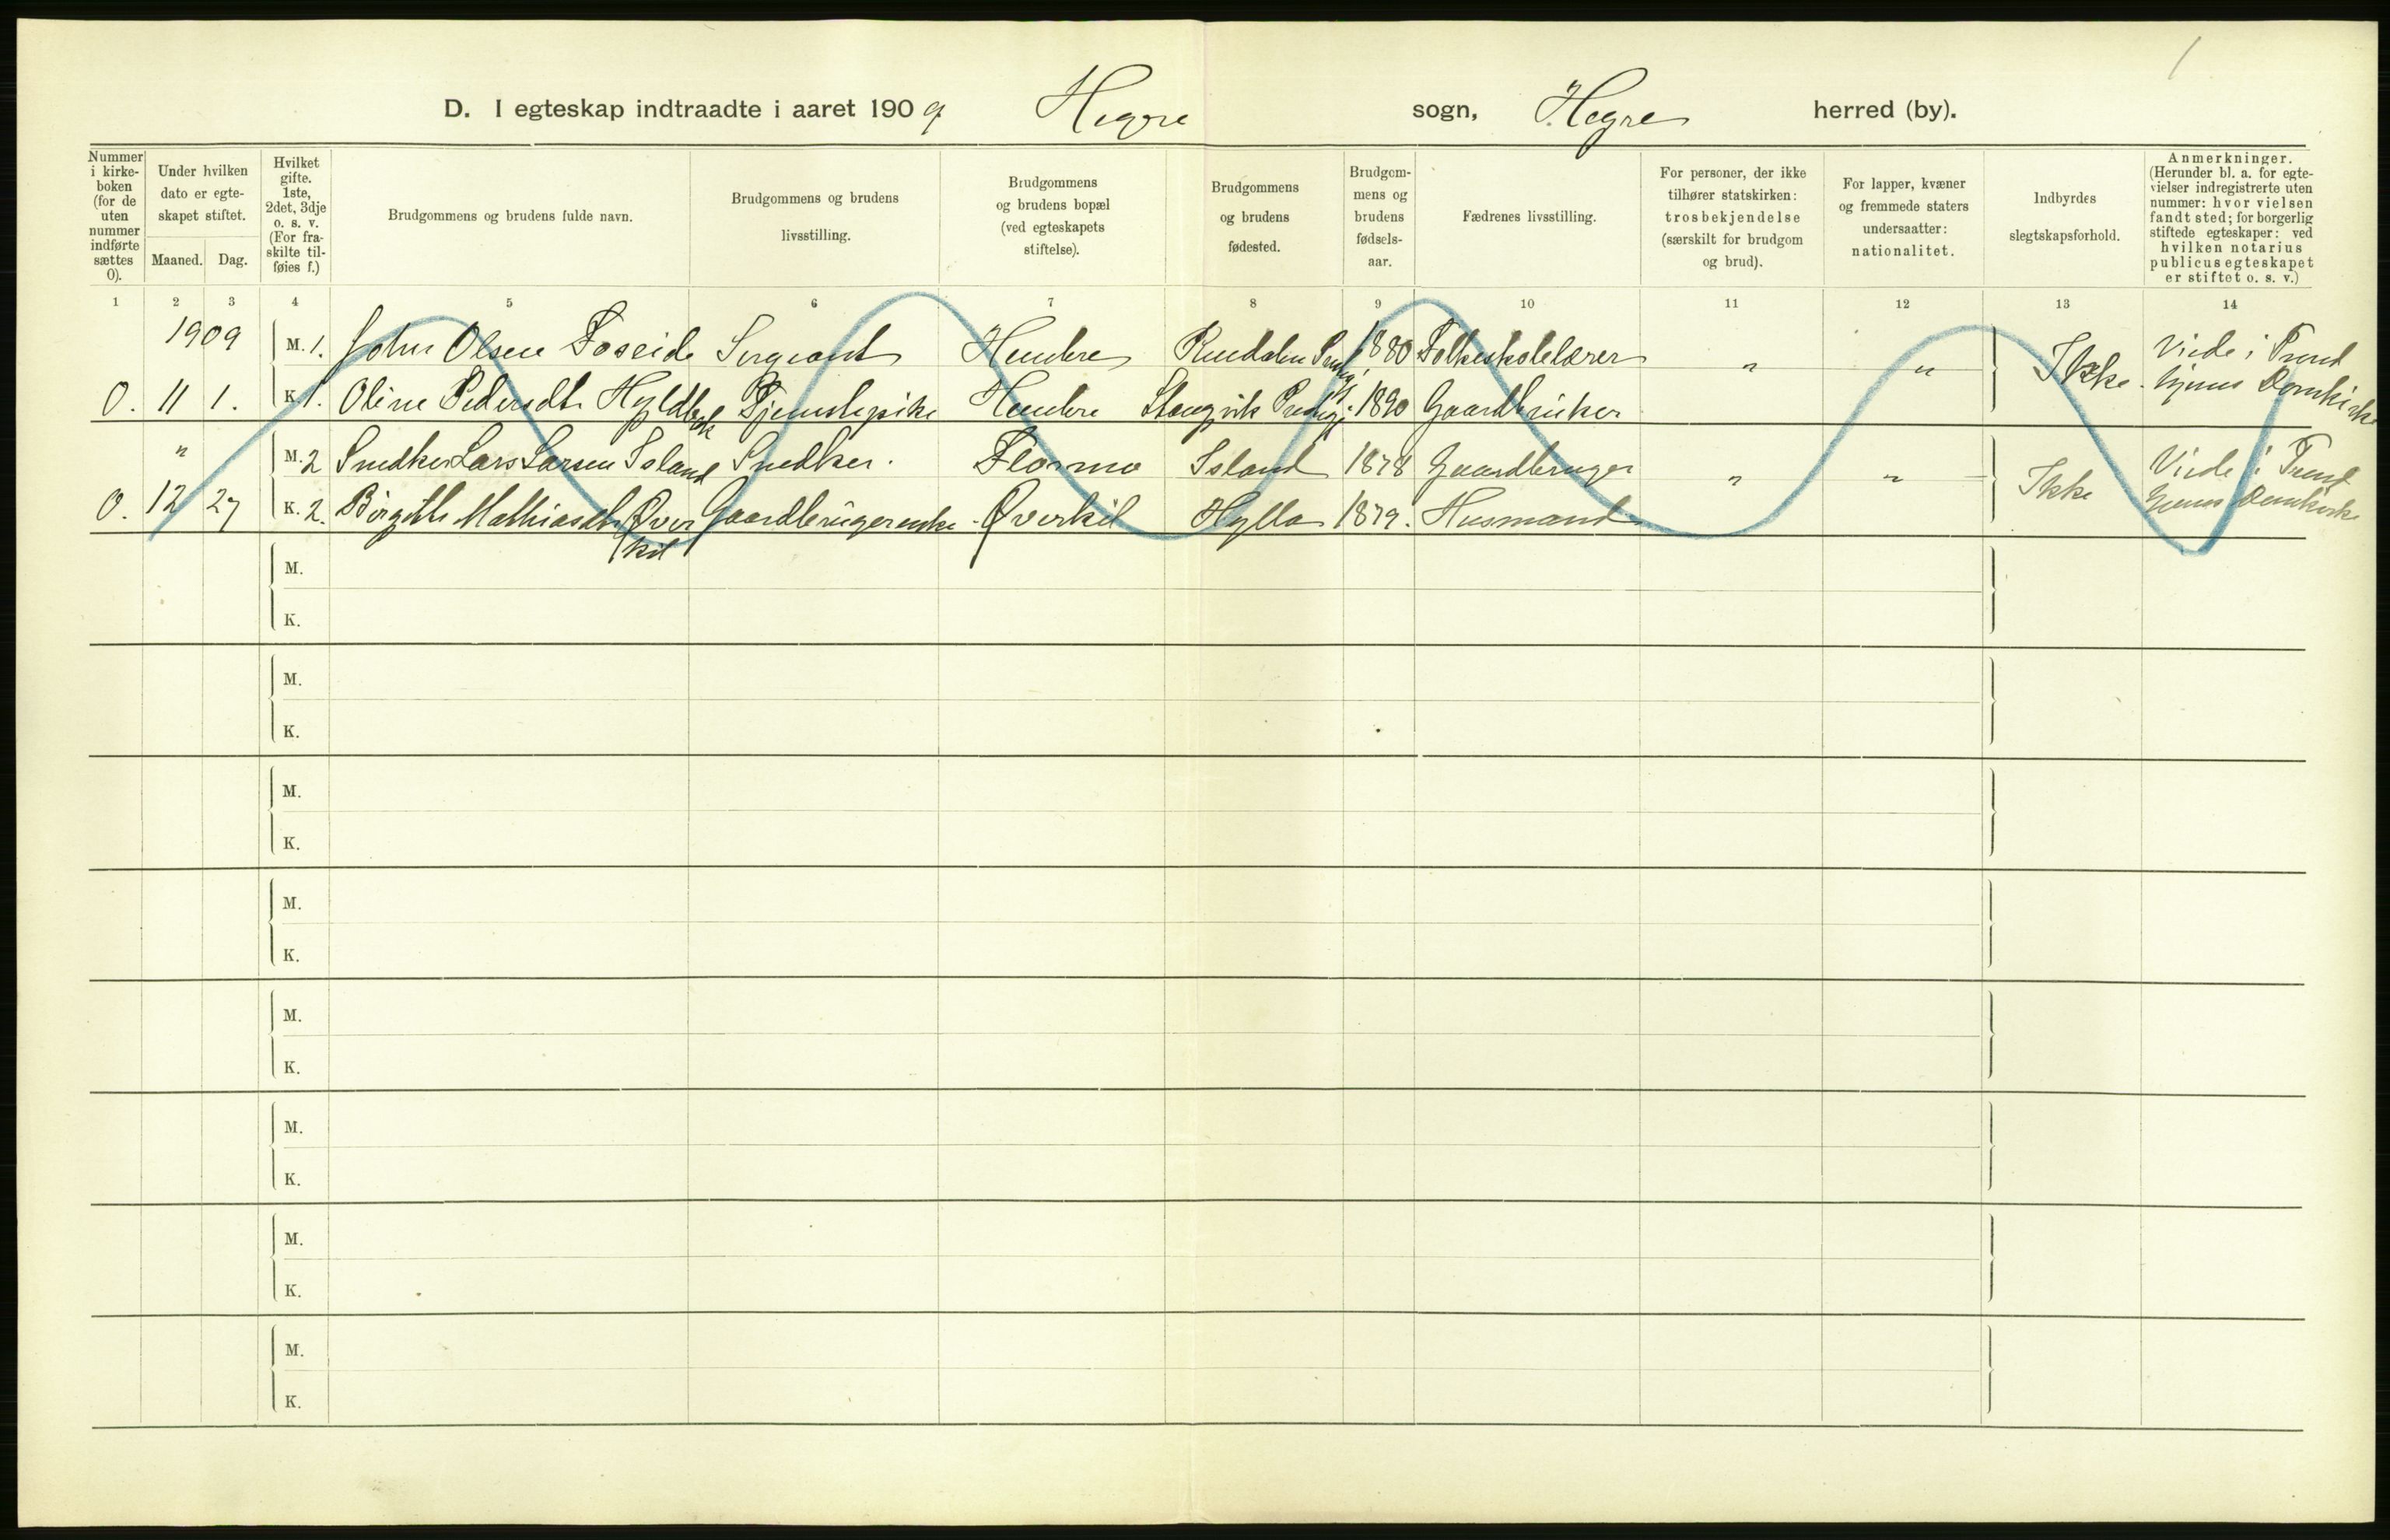 1
D. I egteskap indtraadte i aaret 1909 Hegre sogn, Hegre herred (by).
Nummer i kirke-boken (for de uten nummer indførte sættes 0).
Under hvilken dato er egte-skapet stiftet.
Maaned. Dag.
Hvilket gifte. 1ste, 2det, 3dje o. s. v. (For fra-skilte til-føies f.)
Brudgommens og brudens fulde navn.
Brudgommens og brudens livsstilling.
Brudgommens og brudens bopæl (ved egteskapets stiftelse).
Brudgommens og brudens fødested.
Brudgom-mens og brudens fødsels-aar.
Fædrenes livsstilling.
For personer, der ikke tilhører statskirken: trosbekjendelse (særskilt for brudgom og brud).
For lapper, kvæner og fremmede staters undersaatter: nationalitet.
Indbyrdes slegtskapsforhold.
Anmerkninger. (Herunder bl. a. for egte-vielser indregistrerte uten nummer: hvor vielsen fandt sted; for borgerlig stiftede egteskaper: ved hvilken notarius publicus egteskapet er stiftet o. s. v.)
1 2 3 4 5 6 7 8 9 10 11 12 13 14
1909 M. 1. John Olsen Foseide Sergeant Hembre 1880 Folkeskolelærer " " Ikke. Viede i Trond
0. 11 1. K. 1. Oline Pedersdt. Tjenestepike Hembre Stangvik 1890 Gaardbruker hjems Domkirke
" M. 2 Snedker Lars Larsen Island Snedker. Flormo Island 1878 Gaardbruger " " Ikke Viede i Trond
0. 12 27 K. 2. Birgitte Mathiasdt. Øver Gaardbrugerenke. Øverkil Hylla 1879. Husmand hjems Domkirke
kil
M.
K.
M.
K.
M.
K.
M.
K.
M.
K.
M.
K.
M.
K.
M.
K.